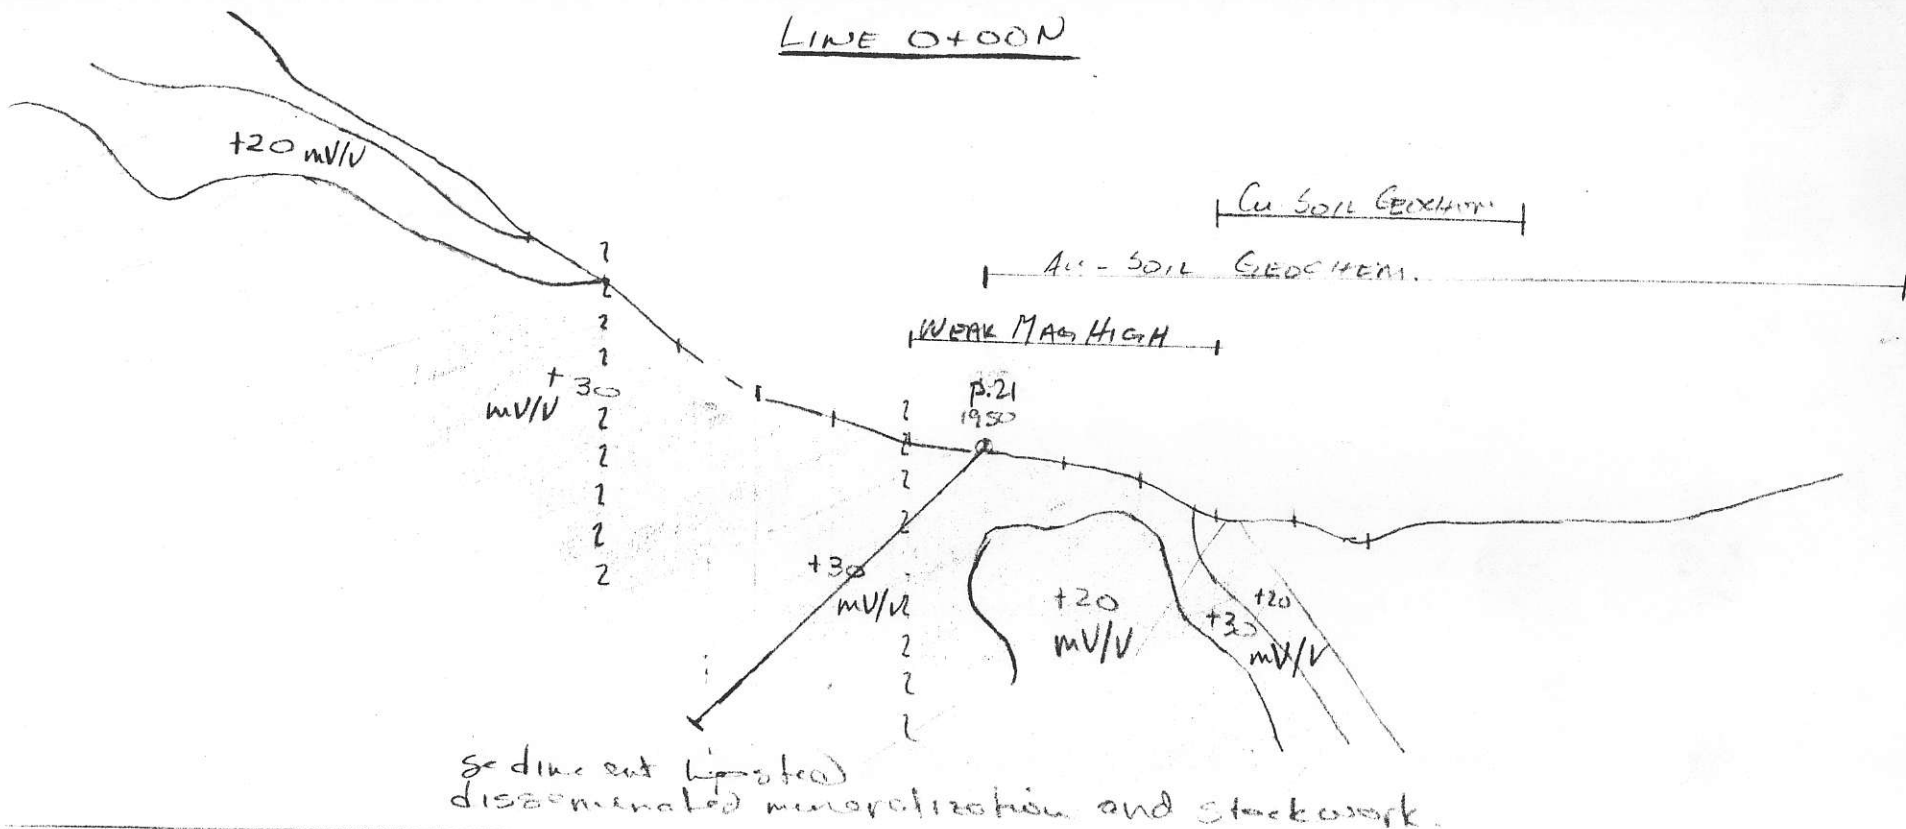 LINE 0+00N
+20 mV/V
Cu SOIL GEOCHEM
Au - SOIL GEOCHEM.
WEAK MAG HIGH
+30
mV/V
p.21
1950
+30
mV/V
+20
mV/V
+20
+30
mV/V
sediment hosted
disseminated mineralization and stockwork.